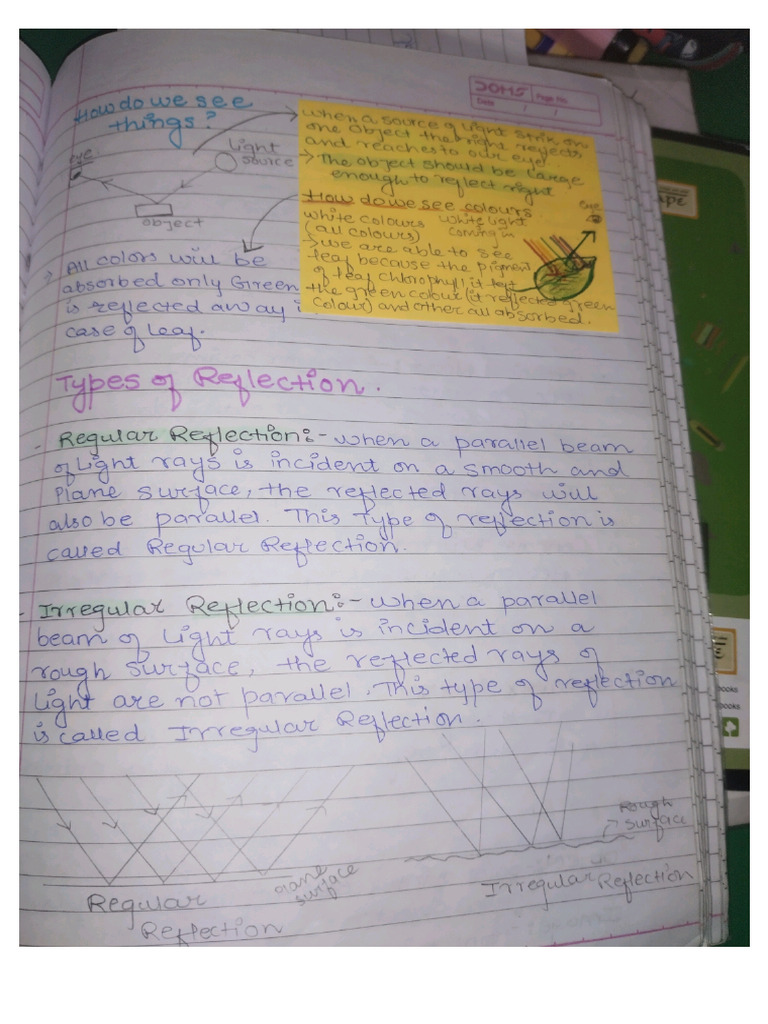 DOMS
Date / / Page No.
How do we see
things?
eye
Light
source
object
when a source of light strik on
one object the right reflects
and reaches to our eye!
→ The object should be large
enough to reflect right
How do we see colours
eye
white colours White light
(all colours) coming in
→ we are able to see
leaf because the pigment
of leaf chlorophyll it
the green colour (it reflected green
colour) and other all absorbed.
→ All colors will be
absorbed only Green
is reflected away i
case of leaf.
Types of Reflection.
- Regular Reflection:- when a parallel beam
of light rays is incident on a smooth and
plane surface, the reflected rays will
also be parallel. This Type of reflection is
called Regular Reflection.
- Irregular Reflection:- when a parallel
beam of light rays is incident on a
rough surface, the reflected rays of
light are not parallel. This type of reflection
is called Irregular Reflection.
Rough
surface
plane
surface
Regular
Reflection
Irregular Reflection
books
books